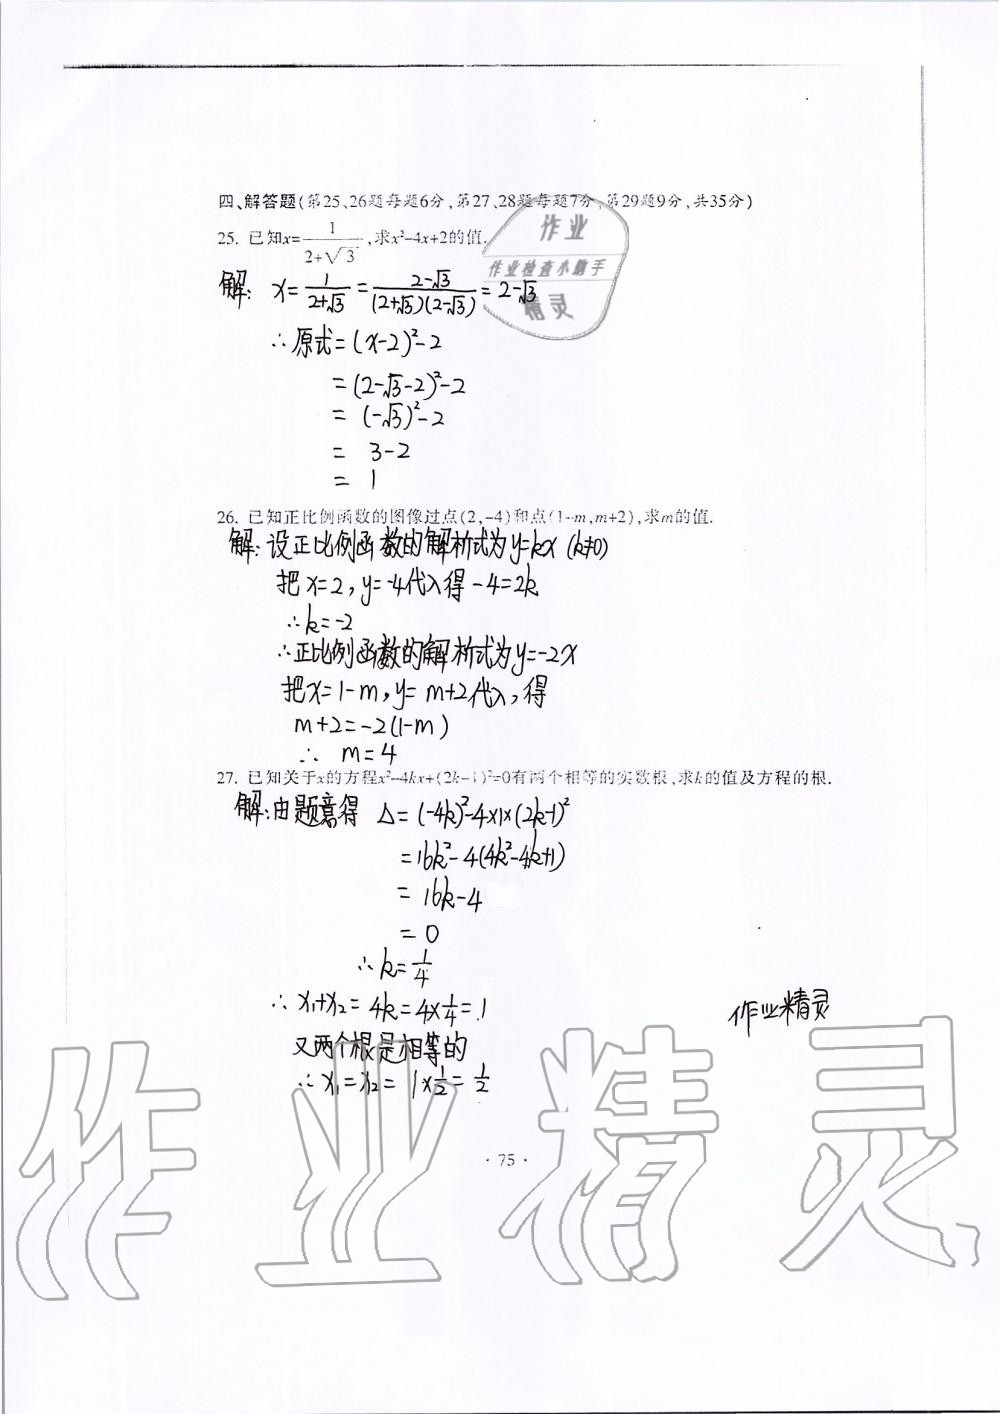 四、解答题(第25、26题每题6分,第27、28题每题7分,第29题9分,共35分)
25. 已知x=1/(2+√3),求x²-4x+2的值.
作业
作业检查小助手
精灵
解: x=1/(2+√3)=(2-√3)/((2+√3)(2-√3))=2-√3
∴原式=(x-2)²-2
=(2-√3-2)²-2
=(-√3)²-2
= 3-2
= 1
26. 已知正比例函数的图像过点(2,-4)和点(1-m,m+2),求m的值.
解:设正比例函数的解析式为y=kx (k≠0)
把x=2,y=-4代入得-4=2k
∴k=-2
∴正比例函数的解析式为y=-2x
把x=1-m,y=m+2代入,得
m+2=-2(1-m)
∴ m=4
27. 已知关于x的方程x²-4kx+(2k-1)²=0有两个相等的实数根,求k的值及方程的根.
解:由题意得 Δ=(-4k)²-4×1×(2k-1)²
=16k²-4(4k²-4k+1)
= 16k-4
= 0
∴k=1/4
∴ x₁+x₂=4k=4×1/4=1
又两个根是相等的
∴x₁=x₂=1×1/2=1/2
作业精灵
·75·
作业精灵